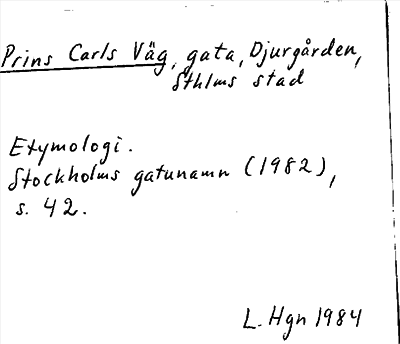 Prins Carls Väg, gata, Djurgården,
Sthlms stad
Etymologi.
Stockholms gatunamn (1982),
s. 42.
L. Hgn 1984